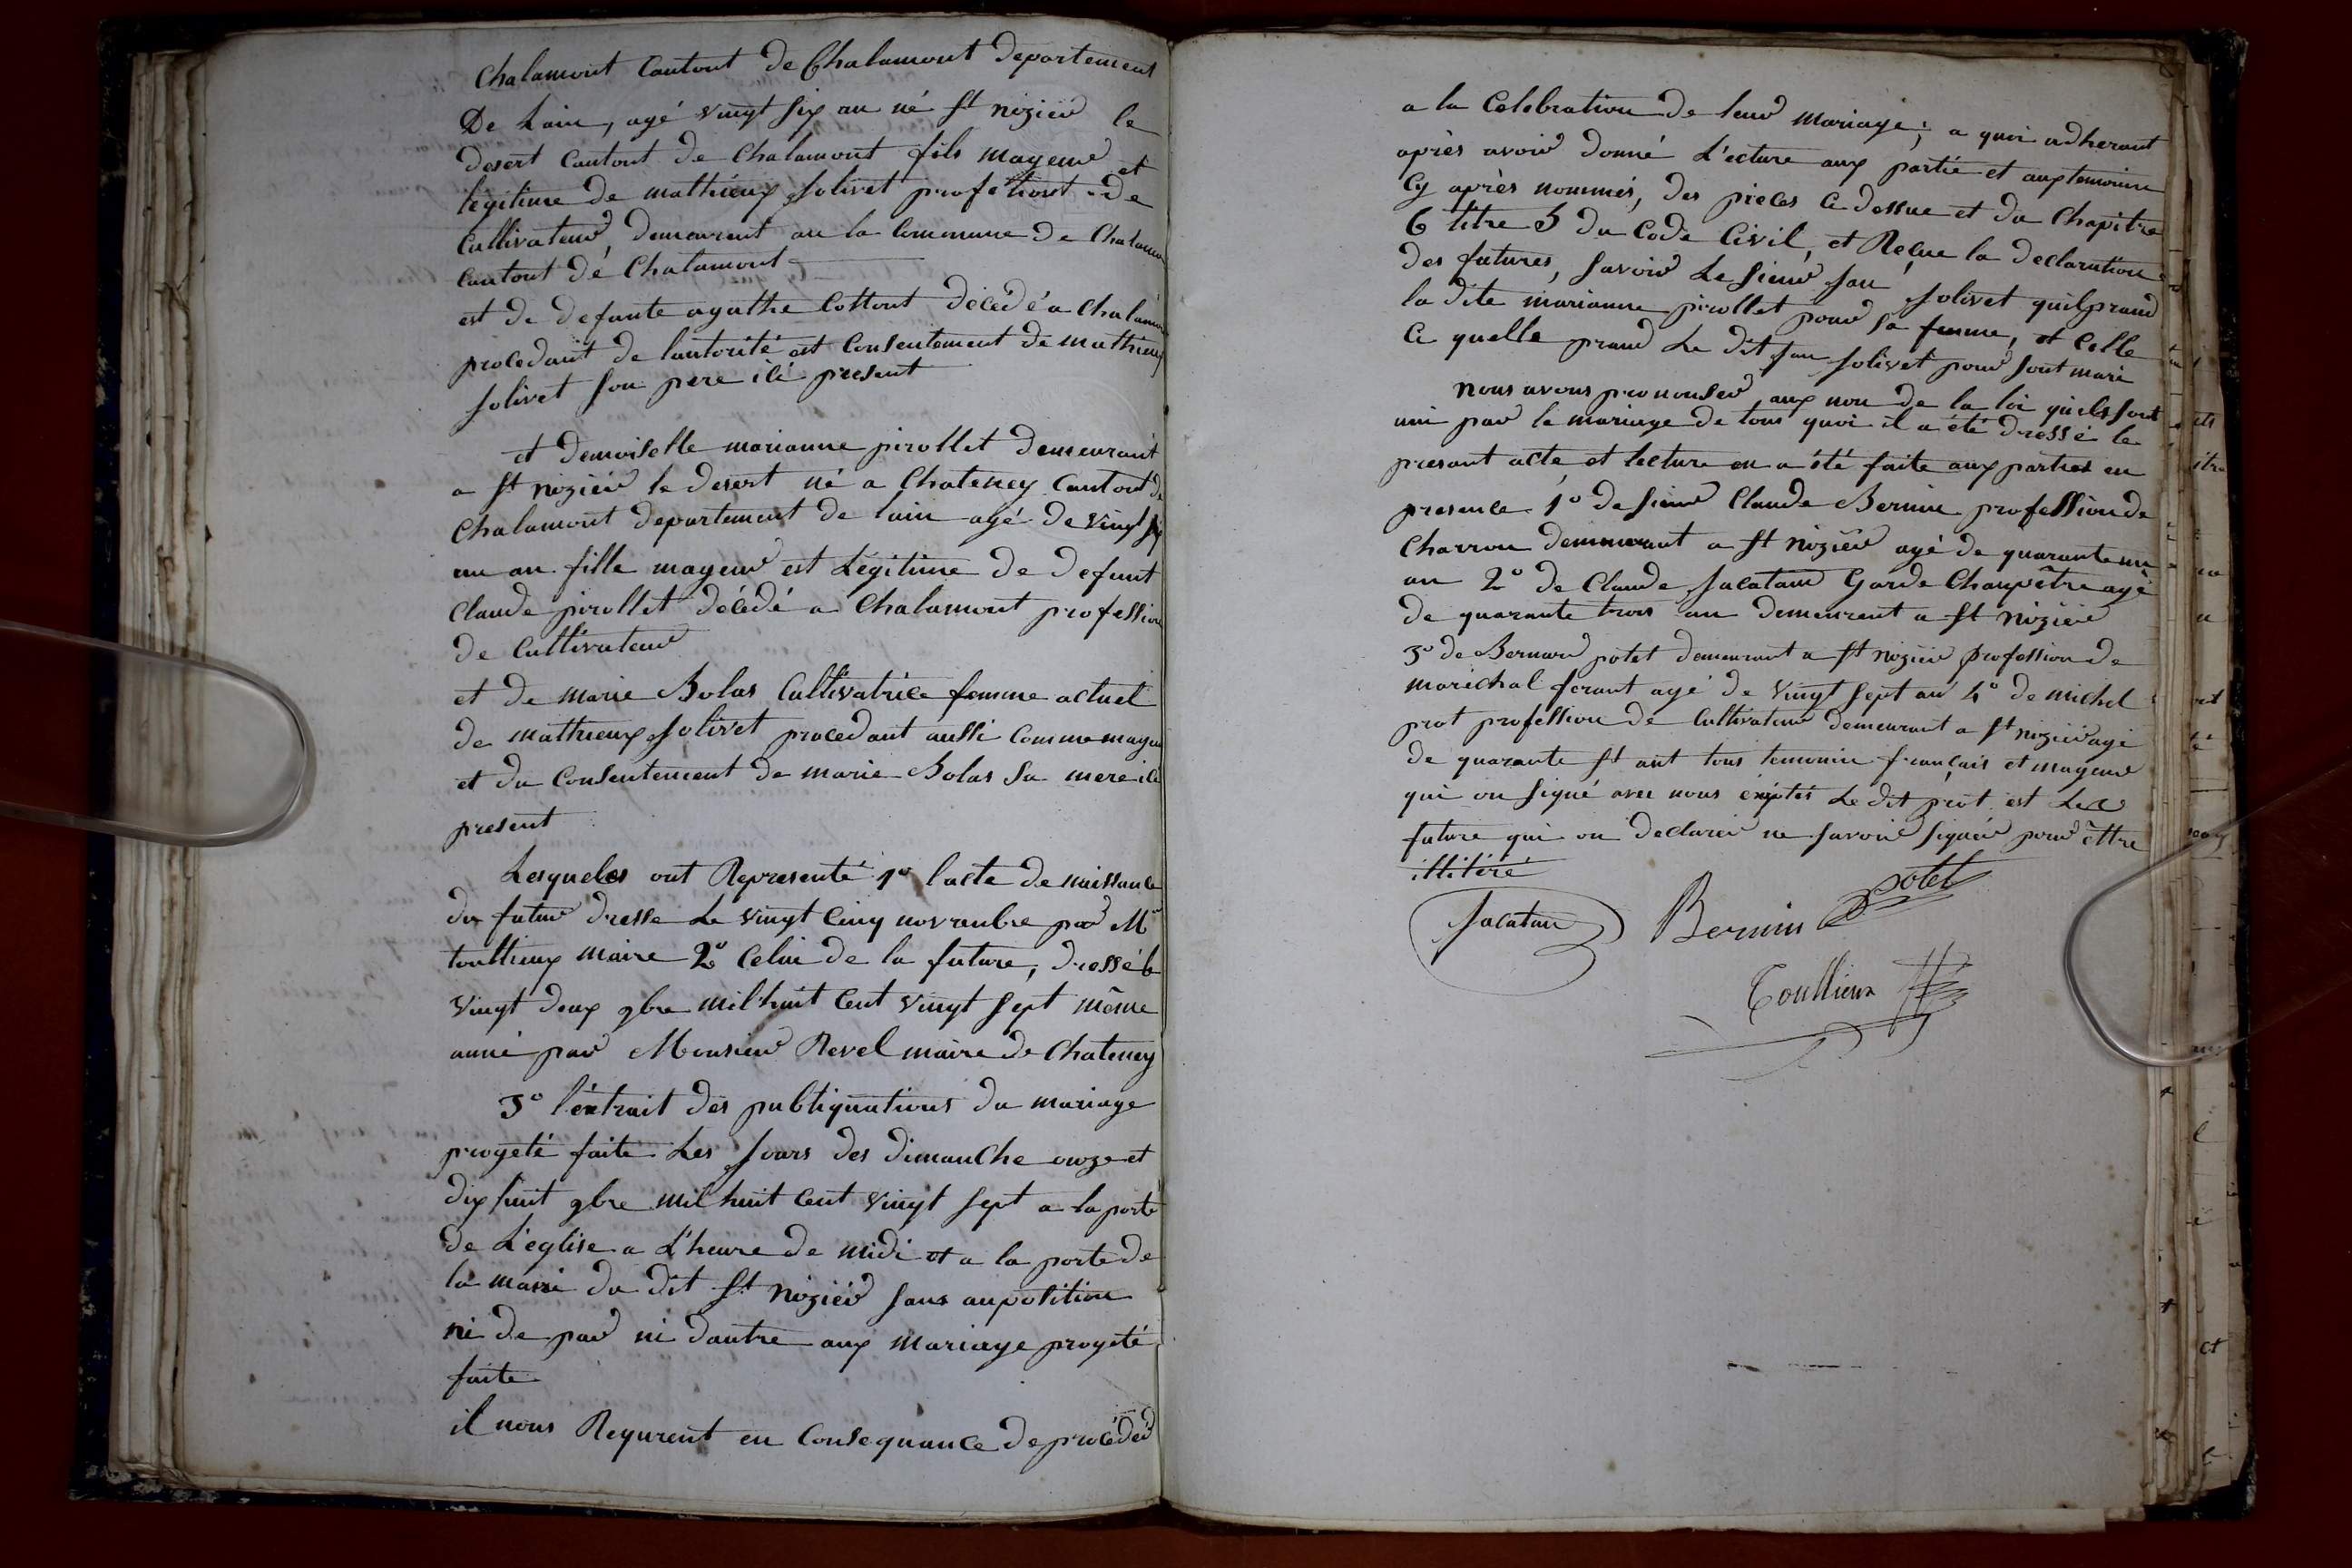 Chalamont Cantont de Chalamont Departement
De Lain, agé vingt six an né st nizier le
desert Cantont de Chalamont fils mayeur et
legitime de mathieux Solivet profetiont de
Cultivateur, demeurent au la Commune de Chalamon
Cantont dé Chalamont
est de defunte agathe Cottont décédé a Chalamon
procedant de lautorité est Consentement de mathieux
Solivet son pere ici present
et demoiselle marianne pirollet demeurant
a st nizier le desert né a Chateney Cantont de
Chalamont departement de lain agé de vingt six
an fille mayeur est Légitime de defunt
Claude pirollet décédé a Chalamont profession
de Cultivateur
et de marie Bolas Cultivatrice femme actuel
de mathieux Solivet procedant aussi Comme mayeu
et du Consentement de marie Bolas sa mere ici
present
Lesqueles ont Representé 1º lacte de naissance
du futur dresse Le vingt Cinq novembre par Mr
toullieux maire 2º Celui de la future, dressé le
vingt deux gbre mil huit Cent vingt sept même
anné par Monsieur Revel maire de Chateney
3º l'extrait des publiquations du mariage
progeté faite Les Jours des dimanche onze et
dix huit gbre mil huit Cent vingt sept a la porte
de L'eglise a L'heure de midi et a la porte de
la mairi du dit st nizier sans aupositione
ni de par ni dautre aux mariage progeté
faite
il nous Requrent en Consequance de procéder
a la Celebration de leur mariage; a quoi adherant
après avoir donné L'ecture aux partie et aux temoins
Cy après nommés, des pieces Ci dessue et du Chapitre
6 titre 5 du Code Civil, et Reçue la declaration
des futures, savoir Le sieur Jan Solivet quil prand
la dite marianne pirollet pour sa femme, et Celle
Ci quelle prand Le dit Jan Solivet pour sont mari
nous avons prononser aux non de la loi quils sont
uni par le mariage de tous quoi il a été dressé le
presant acte et lecture en a été faite aux parties en
presence 1º de sieur Claude Bernin profession de
Charron demeurant a st nizier agé de quarante un
an 2º de Claude Jacatan Garde Champêtre agé
de quarante trois an demeurent a st nizier
3º de Bernard potet demeurant a st nizier profession de
marichal ferant agé de vingt sept an 4º de michel
prot profession de Cultivateur demeurant a st nizier agé
de quarante st ant tous temoin français et mayeur
qui on signé avec nous éxiptés Le dit prot est Les
future qui on declarer ne savoir signér pour ettre
illitéré
Jacatan Bernin potet
Toullieux